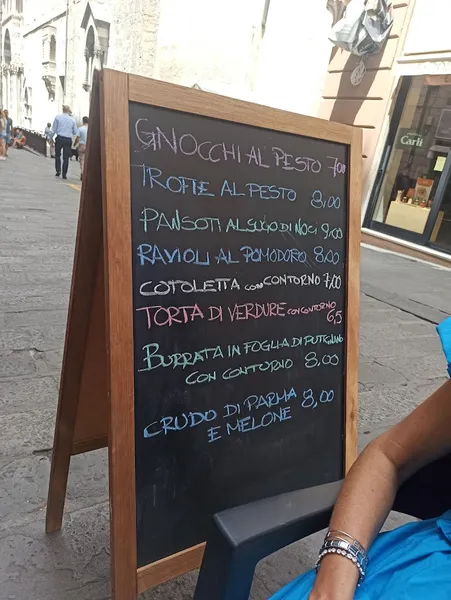 GNOCCHI AL PESTO 7,00
TROFIE AL PESTO 8,00
PANSOTI AL SUGO DI NOCI 9,00
RAVIOLI AL POMODORO 8,00
COTOLETTA CON CONTORNO 7,00
TORTA DI VERDURE CON CONTORNO
6,5
BURRATA IN FOGLIA DI PUTIGNANO
CON CONTORNO 8,00
CRUDO DI PARMA 8,00
E MELONE
Carli